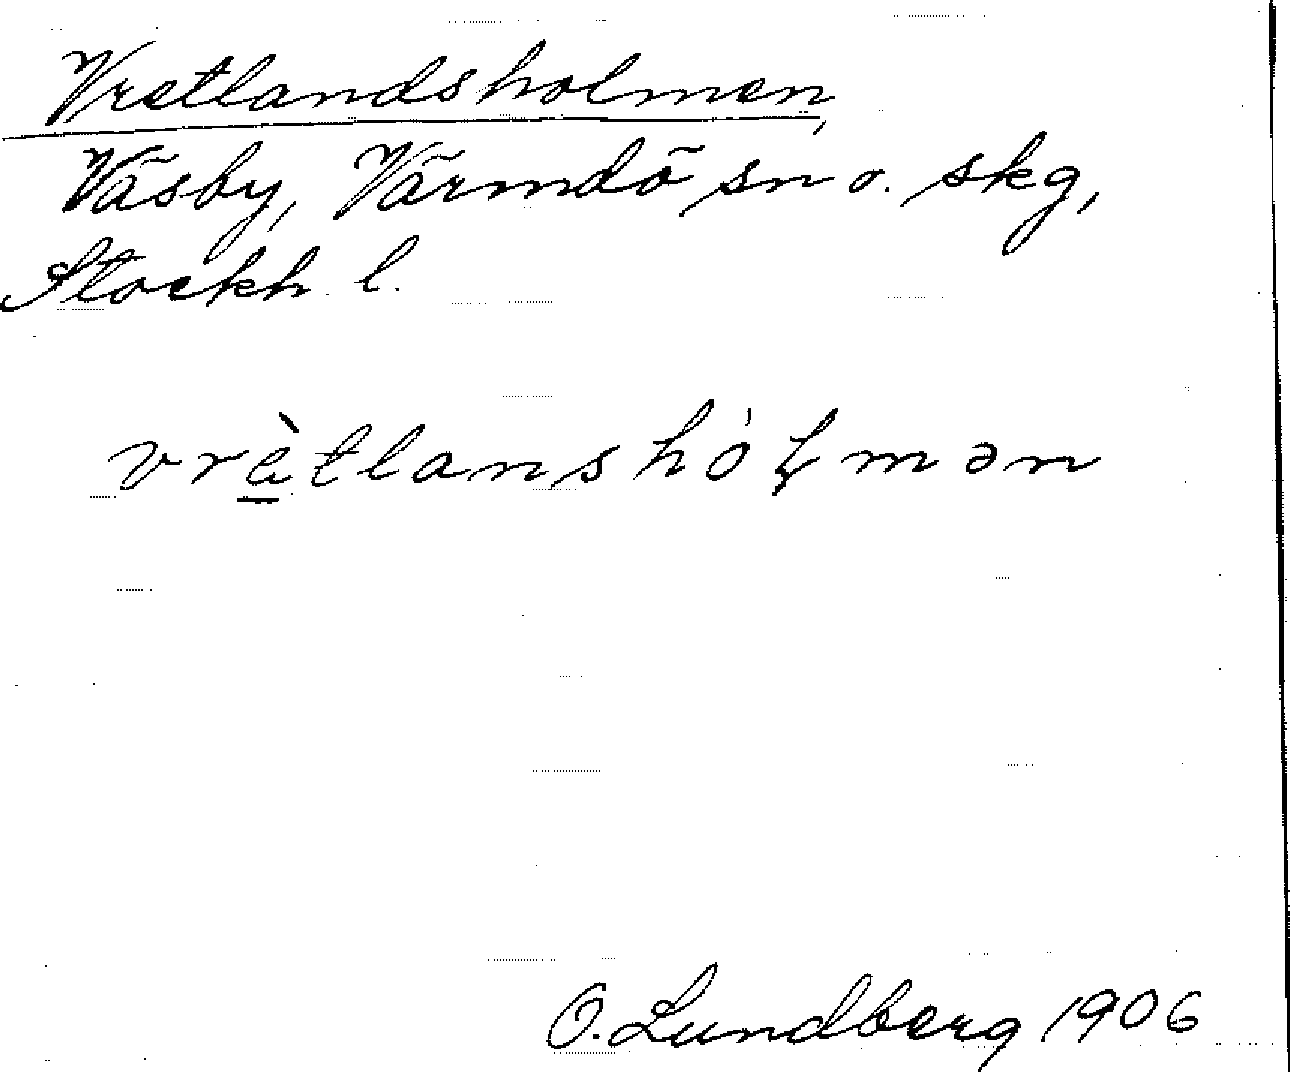 Vretlandsholmen,
Väsby, Värmdö sn o. skg,
Stockh. l.
vrètlanshóɫmən
O. Lundberg 1906